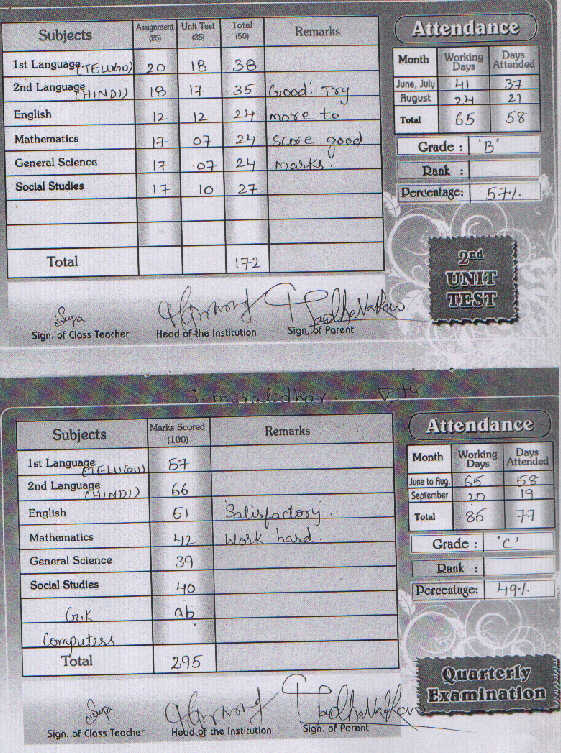 Subjects Assignment (25) Unit Test (25) Total (50) Remarks
1st Language (TELUGU) 20 18 38
2nd Language (HINDI) 18 17 35 Good! Try
English 12 12 24 more to
Mathematics 17 07 24 score good
General Science 17 07 24 marks.
Social Studies 17 10 27
Total 172
Sign. of Class Teacher Head of the Institution Sign. of Parent
Attendance
Month Working Days Days Attended
June, July 41 37
August 24 21
Total 65 58
Grade : 'B'
Rank :
Percentage: 57%
2nd
UNIT
TEST
Subjects Marks Scored (100) Remarks
1st Language (TELUGU) 57
2nd Language (HINDI) 66
English 51 Satisfactory.
Mathematics 42 Work hard.
General Science 39
Social Studies 40
G.K ab
Computers
Total 295
Sign. of Class Teacher Head of the Institution Sign. of Parent
Attendance
Month Working Days Days Attended
June to Aug. 65 58
September 20 19
Total 85 77
Grade : 'C'
Rank :
Percentage: 49%
Quarterly
Examination